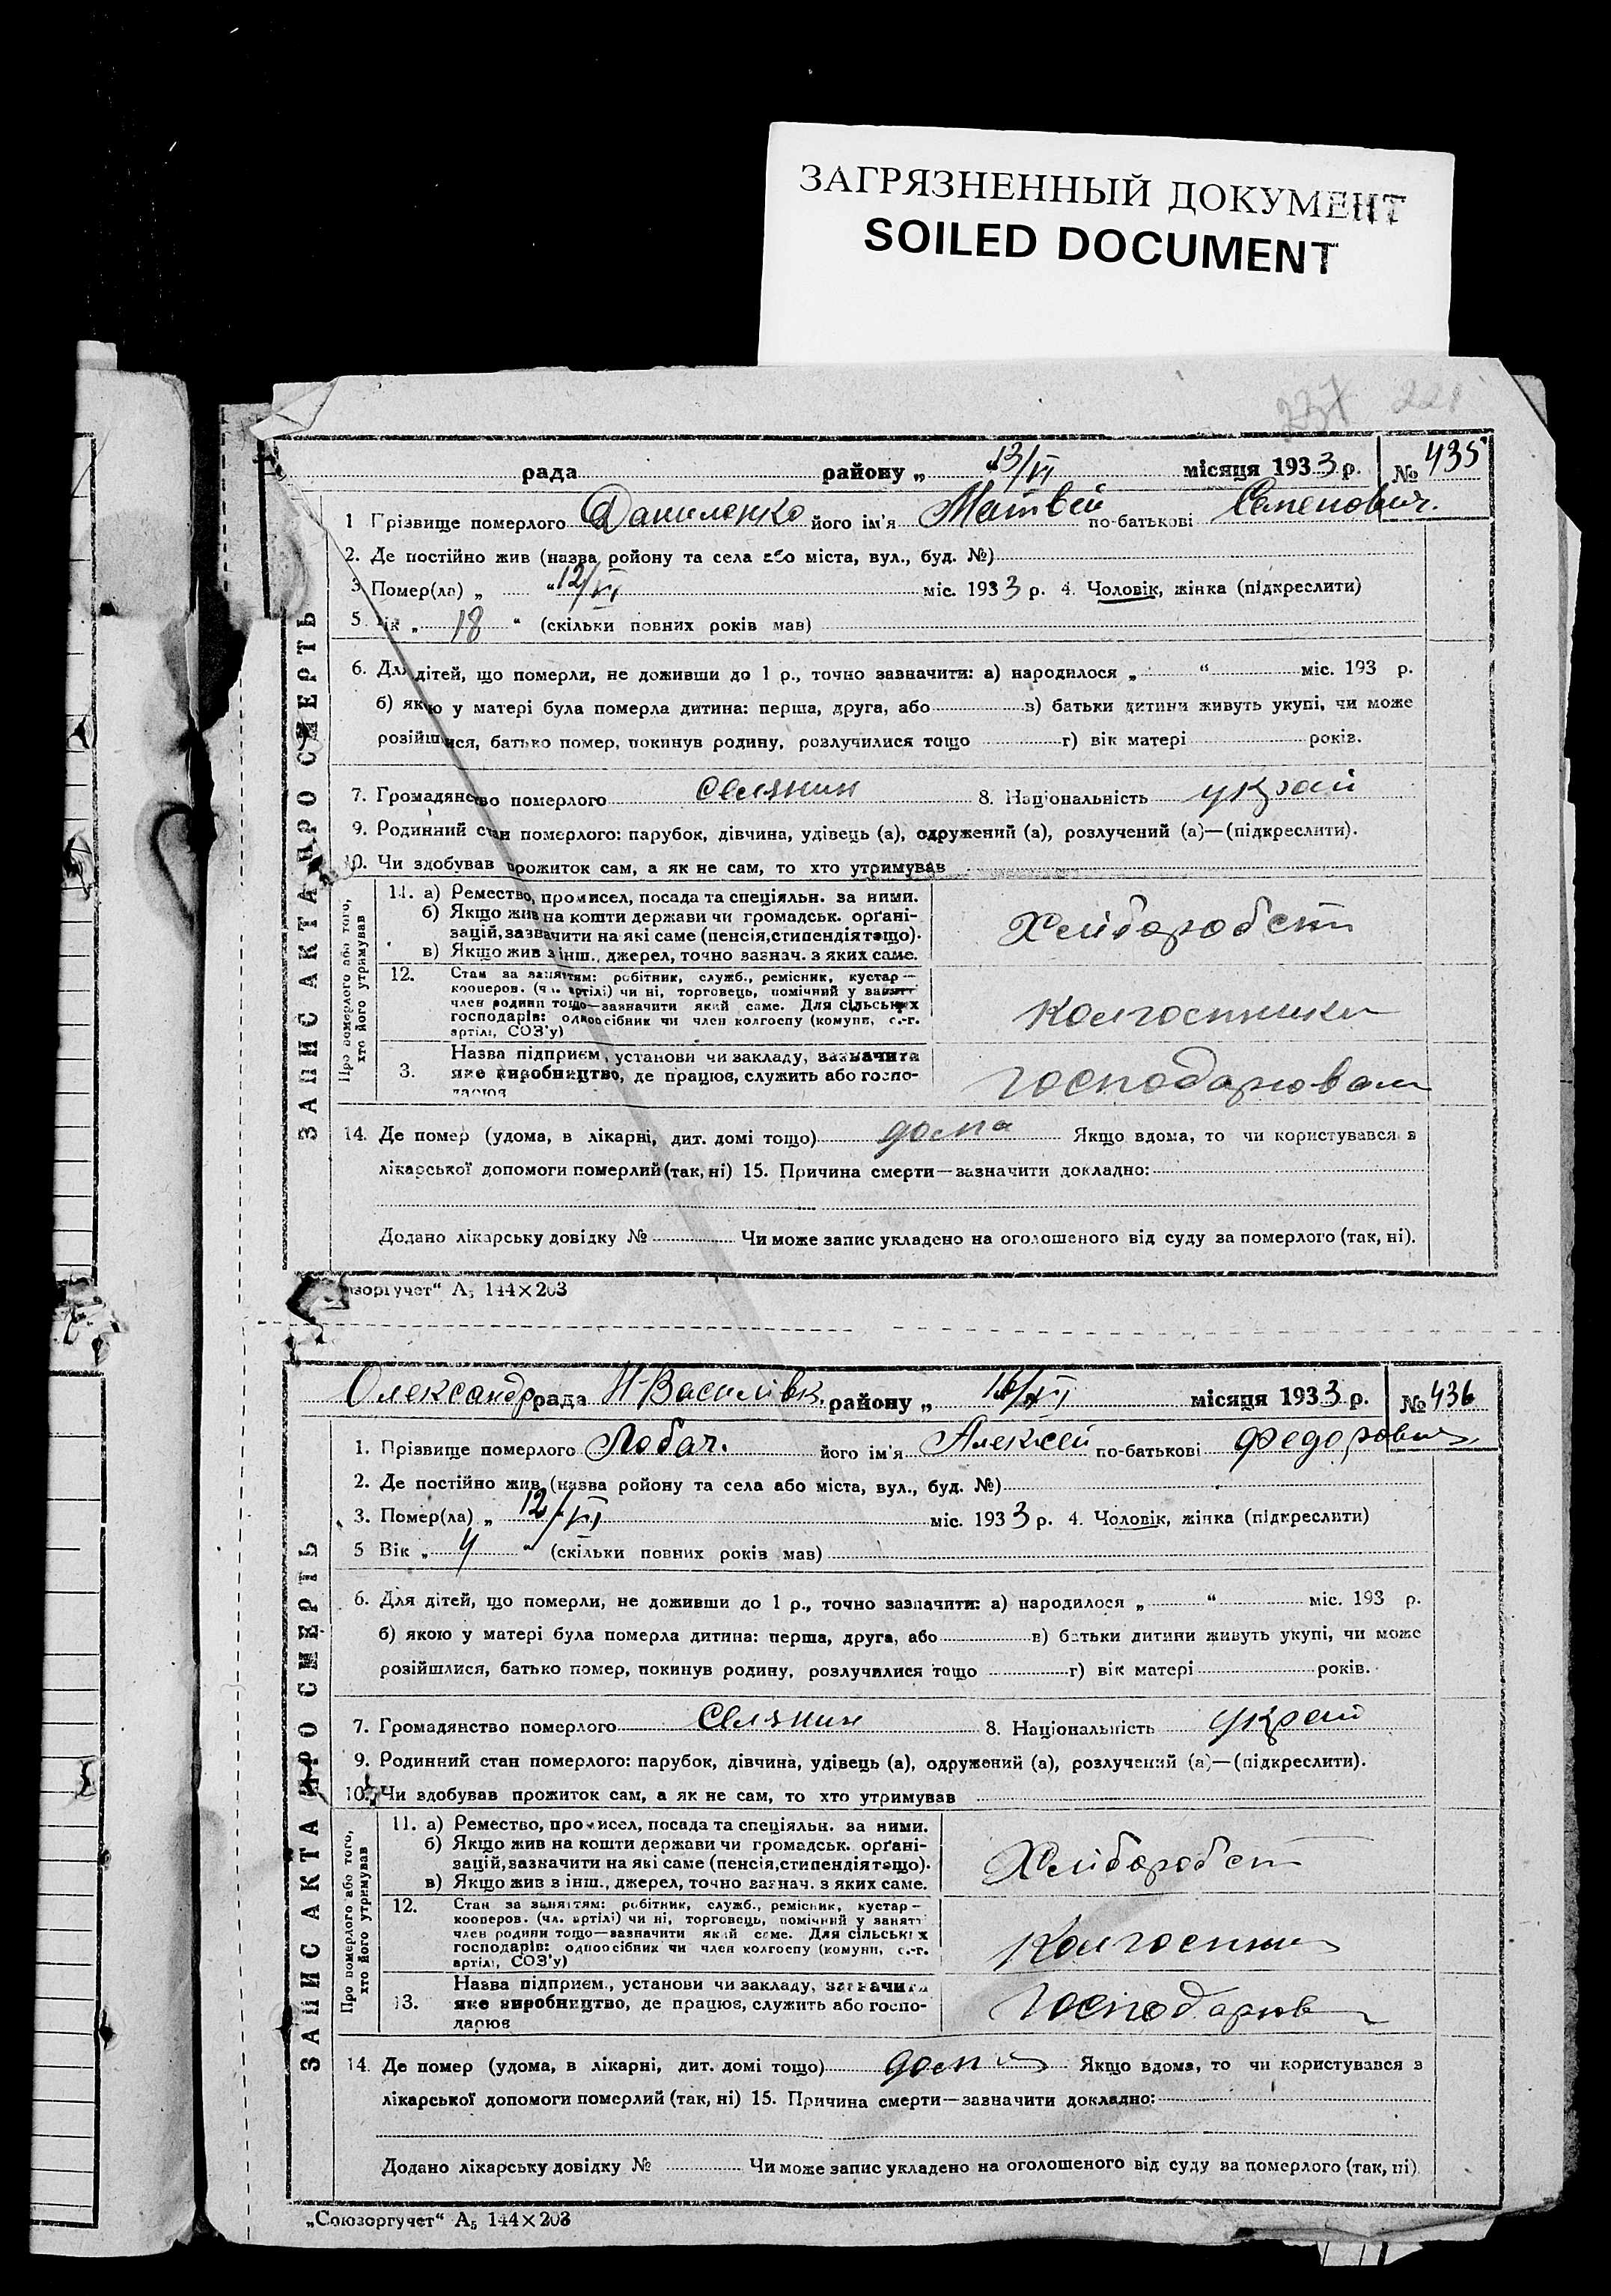 ЗАГРЯЗНЕННЫЙ ДОКУМЕНТ
SOILED DOCUMENT
237 228
рада району „ 13/VI місяця 1933 р. № 435
ЗАПИС АКТА ПРО СМЕРТЬ
1 Прізвище померлого Даниленко його ім'я Матвей по-батькові Семенович.
2. Де постійно жив (назва ройону та села або міста, вул., буд. №)
3 Помер(ла) „ 12/VI міс. 1933 р. 4. Чоловік, жінка (підкреслити)
5. Вік „ 18 “ (скільки повних років мав)
6. Для дітей, що померли, не доживши до 1 р., точно зазначити: а) народилося „ “ міс. 193 р.
б) якою у матері була померла дитина: перша, друга, або в) батьки дитини живуть укупі, чи може
розійшлися, батько помер, покинув родину, розлучилися тощо г) вік матері років.
7. Громадянство померлого Селянин 8. Національність украй
9. Родинний стан померлого: парубок, дівчина, удівець (а), одружений (а), розлучений (а)—(підкреслити).
10. Чи здобував прожиток сам, а як не сам, то хто утримував
Про померлого або того, хто його утримував
11. а) Ремество, промисел, посада та спеціяльн. за ними.
б) Якщо жив на кошти держави чи громадськ. орґані-
зацій, зазначити на які саме (пенсія, стипендія тощо).
в) Якщо жив з інш., джерел, точно зазнач. з яких саме.
Хлібороб
12. Стан за заняттям: робітник, служб., ремісник, кустар—
кооперов. (чл. артілі) чи ні, торговець, помічний у занятт
член родини тощо—зазначити який саме. Для сільських
господарів: одноосібник чи член колгоспу (комуни, с.-г.
артілі, СОЗ'у)
колгоспники
3. Назва підприєм., установи чи закладу, зазначити
яке виробництво, де працює, служить або госпо-
дарює
господарював
14. Де помер (удома, в лікарні, дит. домі тощо) дома Якщо вдома, то чи користувався з
лікарської допомоги померлий (так, ні) 15. Причина смерти—зазначити докладно:
Додано лікарську довідку № Чи може запис укладено на оголошеного від суду за померлого (так, ні).
юзоргучет“ А5 144×203
Олександр рада Н Василівк. району „ 16/VI місяця 1933 р. № 436
ЗАПИС АКТА ПРО СМЕРТЬ
1. Прізвище померлого Лобач. його ім'я Алексей по-батькові Федорович
2. Де постійно жив (назва ройону та села або міста, вул., буд. №)
3. Помер(ла) „ 12/VI міс. 1933 р. 4. Чоловік, жінка (підкреслити)
5 Вік „ 4 “ (скільки повних років мав)
6. Для дітей, що померли, не доживши до 1 р., точно зазначити: а) народилося „ “ міс. 193 р.
б) якою у матері була померла дитина: перша, друга, або в) батьки дитини живуть укупі, чи може
розійшлися, батько помер, покинув родину, розлучилися тощо г) вік матері років.
7. Громадянство померлого Селянин 8. Національність украй
9. Родинний стан померлого: парубок, дівчина, удівець (а), одружений (а), розлучений (а)—(підкреслити).
10. Чи здобував прожиток сам, а як не сам, то хто утримував
Про померлого або того, хто його утримував
11. а) Ремество, промисел, посада та спеціяльн. за ними.
б) Якщо жив на кошти держави чи громадськ. орґані-
зацій, зазначити на які саме (пенсія, стипендія тощо).
в) Якщо жив з інш., джерел, точно зазнач. з яких саме.
Хлібороб
12. Стан за заняттям: робітник, служб., ремісник, кустар—
кооперов. (чл. артілі) чи ні, торговець, помічний у занятт
член родини тощо—зазначити який саме. Для сільських
господарів: одноосібник чи член колгоспу (комуни, с.-г.
артілі, СОЗ'у)
Колгоспник
13. Назва підприєм., установи чи закладу, зазначити
яке виробництво, де працює, служить або госпо-
дарює
Господарюв
14. Де помер (удома, в лікарні, дит. домі тощо) дома Якщо вдома, то чи користувався з
лікарської допомоги померлий (так, ні) 15. Причина смерти—зазначити докладно:
Додано лікарську довідку № Чи може запис укладено на оголошеного від суду за померлого (так, ні)
„Союзоргучет“ А5 144×203